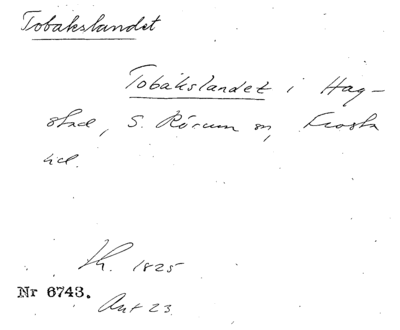 Tobakslandet
Tobakslandet i Hag-
stad, S. Rörum sn, Frosta
hd.
Lh. 1825
Nr 6743.
Akt 23.